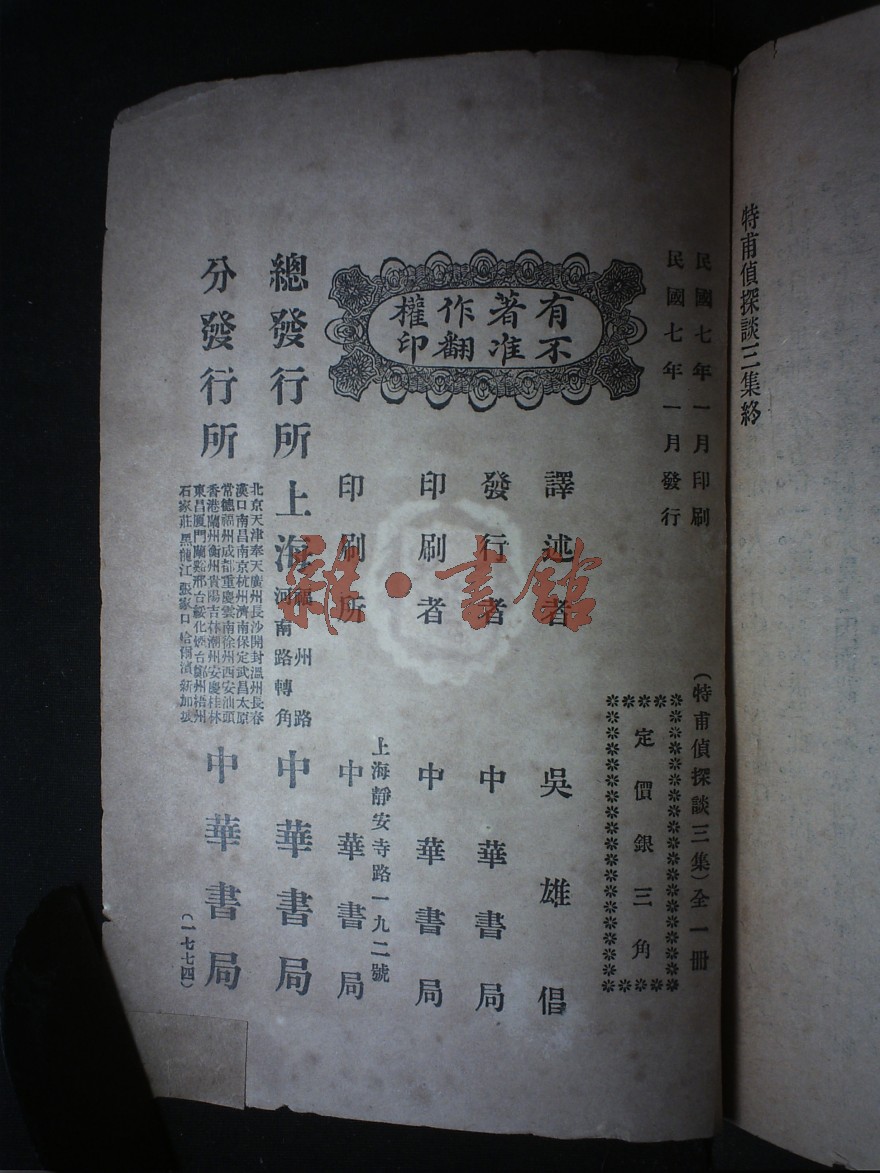 特甫偵探談三集終
民國七年一月印刷
民國七年一月發行
(特甫偵探談三集)全一冊
定價銀三角
有不
著准
作翻
權印
譯述者 吳雄倡
發行者 中華書局
印刷者 中華書局
上海靜安寺路一九二號
印刷所 中華書局
總發行所 上海福州路河南路轉角 中華書局
分發行所
北京天津奉天廣州長沙開封溫州長春
漢口南昌南京杭州濟南保定武昌太原
常德福州成都重慶雲南徐州西安汕頭
香港蘭州衡州貴陽吉林潮州安慶桂林
東昌厦門蘭谿邢台綏化煙台鄭州梧州
石家莊黑龍江張家口哈爾濱新加坡
中華書局
(一七七四)
雜·書館